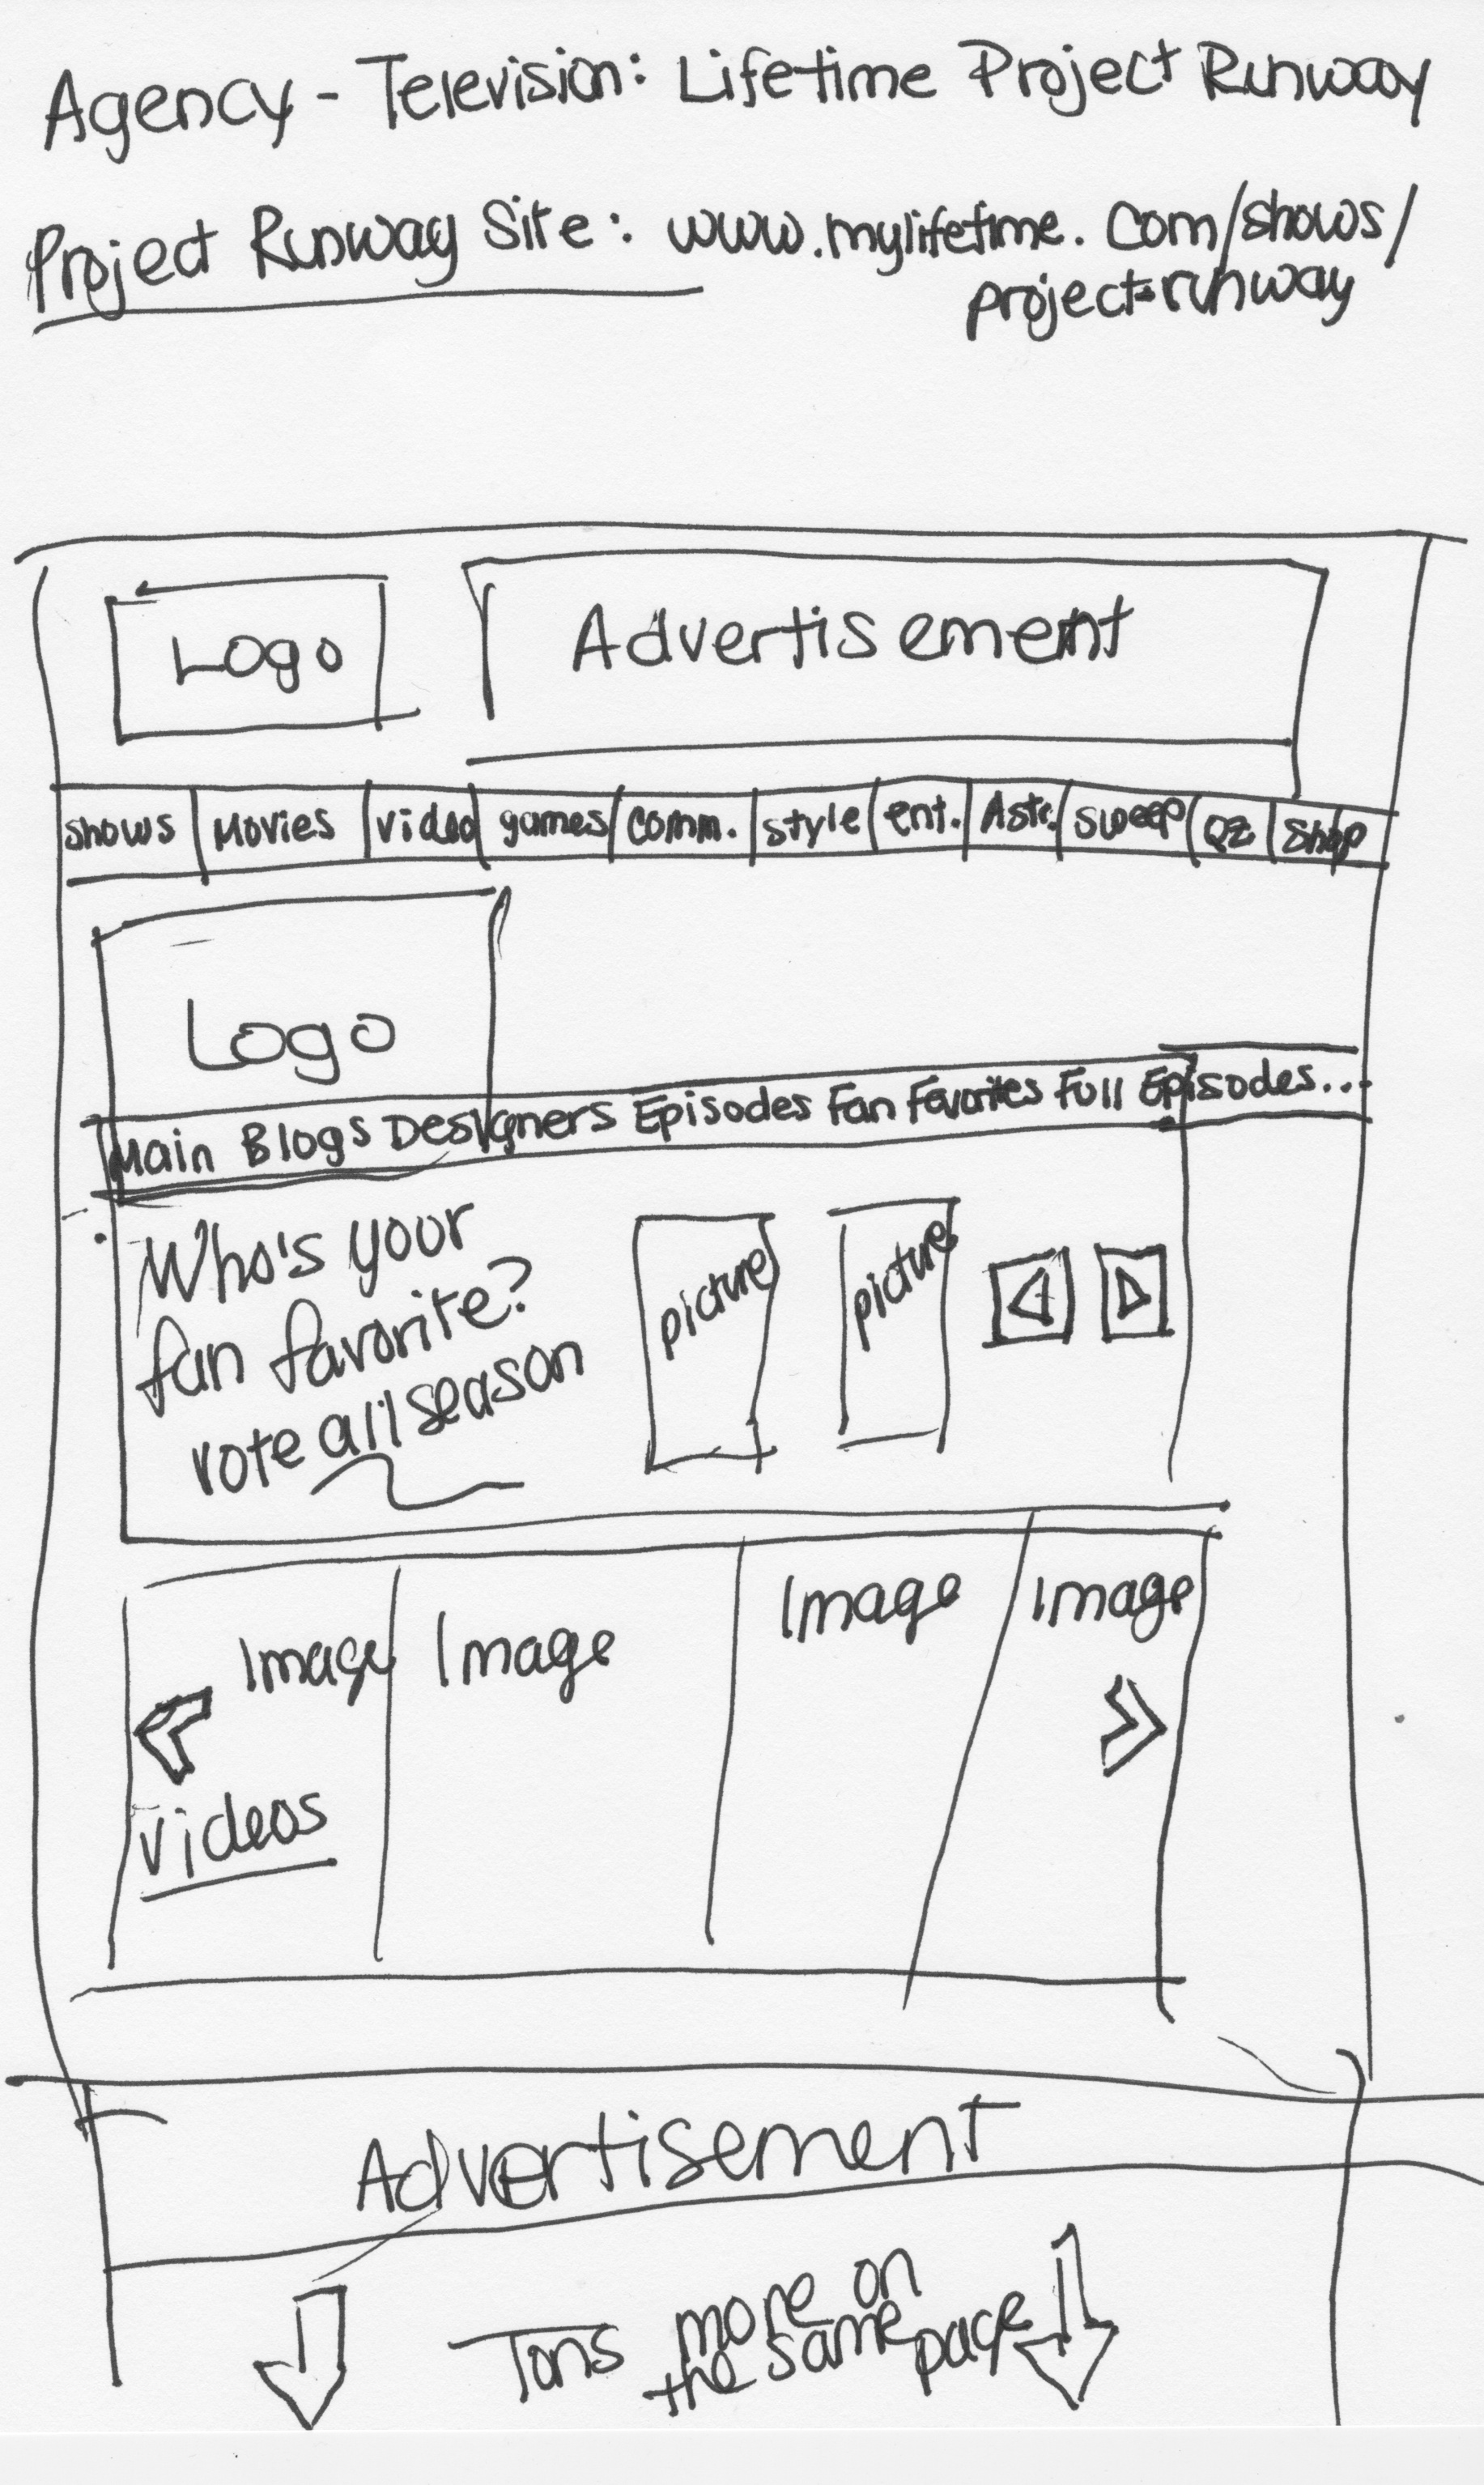 Agency - Television: Lifetime Project Runway
Project Runway Site: www.mylifetime.com/shows/
project-runway
Logo
Advertisement
shows Movies video games comm. style ent. Astr. sweep Qz shop
Logo
Main Blogs Designers Episodes Fan Favorites Full Episodes...
Who's your
fan favorite?
vote all season
picture picture
Image Image Image Image
videos
Advertisement
Tons more on
the same page